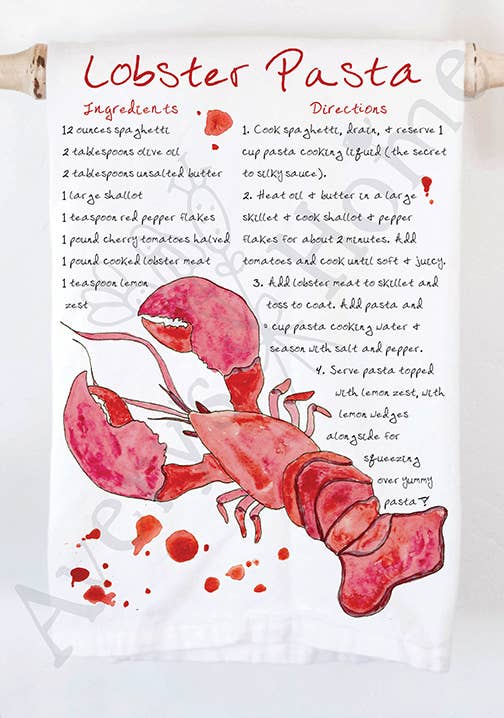 Lobster Pasta
Ingredients
12 ounces spaghetti
2 tablespoons olive oil
2 tablespoons unsalted butter
1 large shallot
1 teaspoon red pepper flakes
1 pound cherry tomatoes halved
1 pound cooked lobster meat
1 teaspoon lemon
zest
Directions
1. Cook spaghetti, drain, & reserve 1
cup pasta cooking liquid (the secret
to silky sauce).
2. Heat oil & butter in a large
skillet & cook shallot & pepper
flakes for about 2 minutes. Add
tomatoes and cook until soft & juicy.
3. Add lobster meat to skillet and
toss to coat. Add pasta and
cup pasta cooking water &
season with salt and pepper.
4. Serve pasta topped
with lemon zest, with
lemon wedges
alongside for
squeezing
over yummy
pasta
Avery's Home